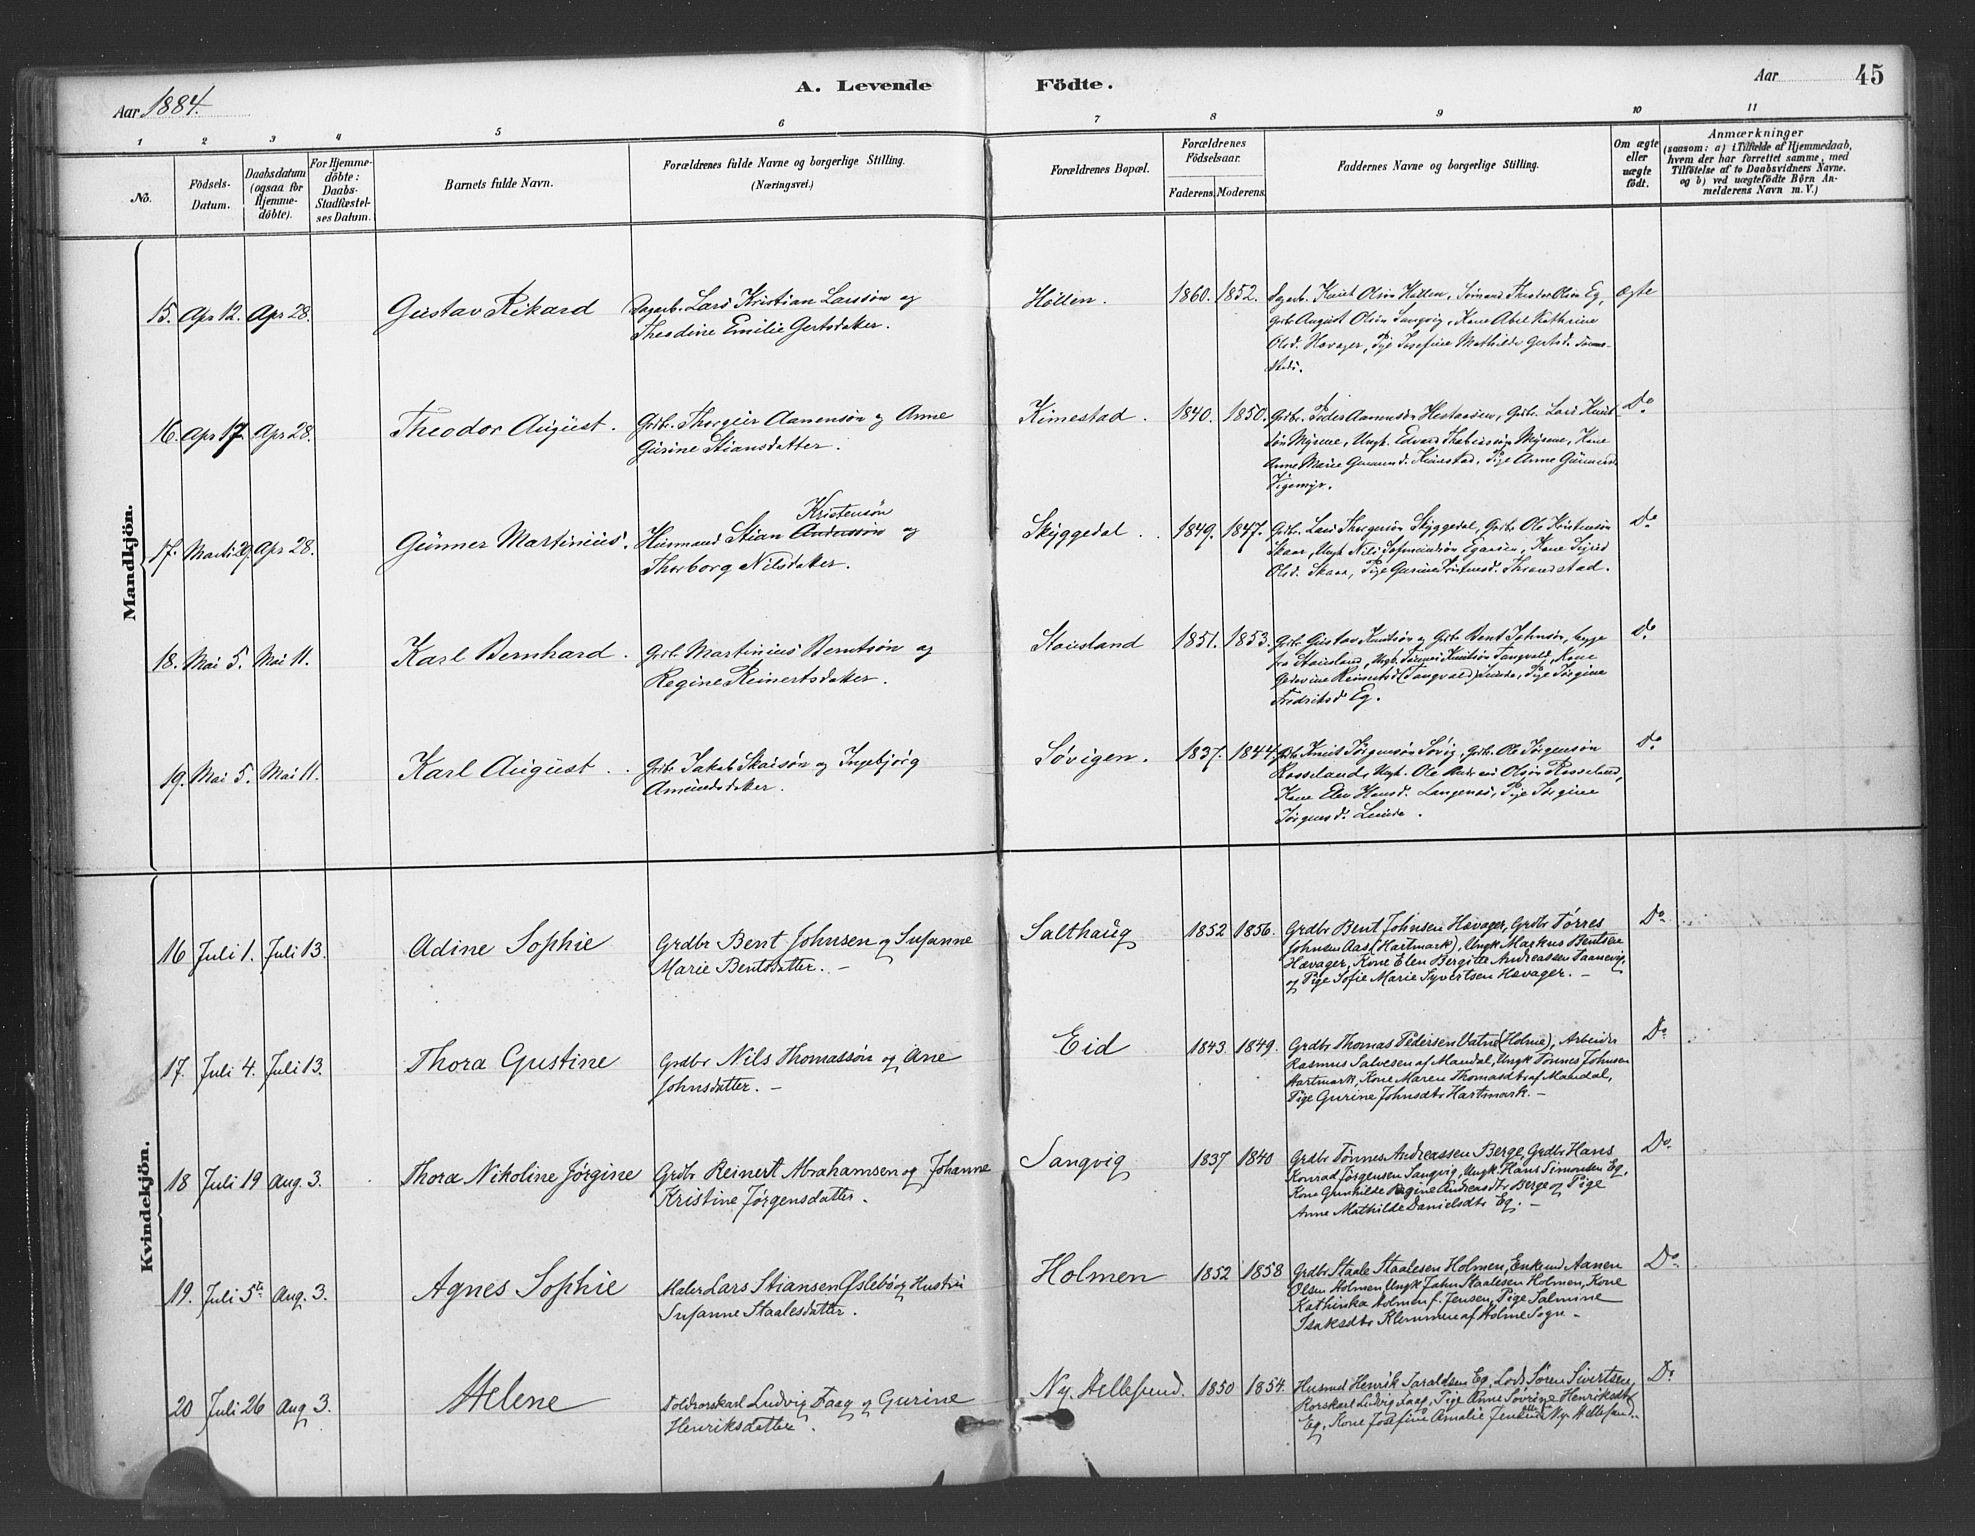 Aar 1884. A. Levende Födte. Aar 45
1 2 3 4 5 6 7 8 9 10 11
No.
Födsels-
Datum.
Daabsdatum
(ogsaa for
Hjemme-
döbte).
For Hjemme-
döbte:
Daabs-
Stadfæstel-
ses Datum.
Barnets fulde Navn.
Forældrenes fulde Navne og borgerlige Stilling.
(Næringsvei.)
Forældrenes Bopæl.
Forældrenes
Födselsaar.
Faderens. Moderens.
Faddernes Navne og borgerlige Stilling.
Om ægte
eller
uægte
födt.
Anmærkninger
(saasom: a) i Tilfælde af Hjemmedaab,
hvem der har forrettet samme, med
Tilföielse af to Daabsvidners Navne.
og b) ved uægtefödte Börn An-
melderens Navn m. V.)
Mandkjön.
15. Apr 12. Apr 28. Gustav Rikard
Dagarb. Lars Kristian Larssøn og
Theodine Emilie Gertsdatter.
Høllen. 1860. 1852.
Dagarb. Knut Olsøn Høllen, Sømand Theodor Olsøn Eg,
Grdb. August Olsøn Sangvig, Kone Abel Kathrine
Olsd. Havager, Pige Josefine Mathilde Gertsd.
ægte
16. Apr 17. Apr 28. Theodor August.
Grdb. Thorgeir Aanensøn og Anne
Gurine Stiansdatter.
Kimestad. 1840. 1850.
Grdbr. Peder Aanensøn, Grdb. Lars Knut
søn Myrene, Ungk. Edvard Myrene, Kone
Anne Marie Kimestad, Pige Anne
Vigemyr.
Do
17. Marts 29. Apr 28. Gunner Martinius.
Kristensøn
Husmand Stian Anderssøn og
Thorborg Nilsdatter.
Skyggedal. 1849. 1847.
Grdb. Lars Thorgersøn Skyggedal, Grdb. Ole Kristensøn
Skaar, Ungk. Nils Egaasen, Kone Sigrid
Olsd. Skaar, Pige Gurine Thronstad.
Do
18. Mai 5. Mai 11. Karl Bernhard.
Grdb. Martinius Berntsøn og
Regine Reinertsdatter.
Stausland 1851. 1853.
Grdb. Gustav Knutsøn og Grdb. Bent Johnsøn, begge
fra Stausland, Ungk. Tønnes Knutsøn Tangvald, Kone
Reinertsd. (Tangvald) Lunde, Pige Jørgine
Fredriksd. Eg.
Do
19. Mai 5. Mai 11. Karl August.
Grdb. Jakob Skaisøn og Ingebjørg
Amundsdatter.
Søvigen. 1837. 1844.
Grdb. Knut Jørgensøn Søvig, Grdb. Ole Jørgensøn
Rosseland, Ungk. Ole Andreas Olsøn Rosseland,
Kone Elen Hansd. Langenes, Pige Jørgine
Jørgensd. Lunde.
Do
Kvindekjön.
16 Juli 1. Juli 13. Adine Sophie
Grdbr Bent Johnsen og Susanne
Marie Bentsdatter. –
Salthaug 1852 1856.
Grdbr Bent Johnsen Hævager, Grdbr Tørres
Johnsen Aas (Hartmark), Ungk Markus Bentsen
Hævager, Kone Elen Bergitte Andreassen Saanevig.
og Pige Sofie Marie Syvertsen Hævager. –
Do
17. Juli 4. Juli 13. Thora Gustine
Grdbr Nils Thomassøn og Ane
Johnsdatter. –
Eid 1843 1849.
Grdbr Thomas Pedersen Vatne (Holme), Arbeider
Rasmus Salvesen af Mandal, Ungk Tønnes Johnsen
Hartmark, Kone Maren Thomasdtr af Mandal,
Pige Gurine Johnsdtr Hartmark. –
Do
18 Juli 19 Aug. 3. Thora Nikoline Jørgine
Grdbr Reinert Abrahamsen og Johanne
Kristine Jørgensdatter. –
Sangvig 1837 1840
Grdbr Tønnes Andreassen Berge, Grdbr Hans
Konrad Jørgensen Sangvig, Ungk. Hans Simonsen Eg,
Kone Gunhilde Regine Andreasdtr Berge og Pige
Anne Mathilde Danielsdtr Eg. –
Do
19. Juli 5te Aug. 3. Agnes Sophie
Maler Lars Stiansen Øslebø og Hustru
Susanne Staalesdatter.
Holmen 1852 1858
Grdbr Staale Staalesen Holmen, Enkem Aanen
Olsen Holmen, Ungk Jahn Staalesen Holmen, Kone
Kathinka Holmen f. Jensen, Pige Salmine
Isaksdtr Klemmen af Holme Sogn –
Do
20 Juli 26 Aug 3. Helene
Toldrorskarl Ludvig Faag og Gurine
Henriksdatter.
Ny. Hellesund. 1850 1854.
Husmd Henrik Taraldsen Eg, Lods Søren Sivertsen,
Rorskarl Ludvig Faag, Pige Anne Severine Henriksdtr
Eg, Kone Josefine Amalie Ny Hellesund.
Do